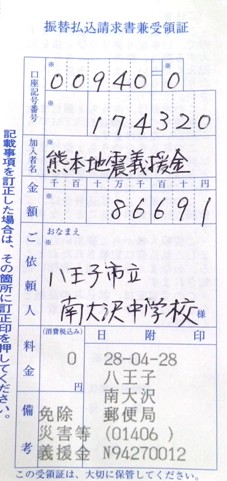 振替払込請求書兼受領証
口座記号番号 ※ 00940 ※ 0
※ 174320
加入者名 ※ 熊本地震義援金
金額 千 百 十 万 千 百 十 円
※ 86691
ご依頼人 おなまえ
※ 八王子市立
南大沢中学校 様
料金 (消費税込み) 0 円
日附印
28-04-28
八王子
南大沢
備考 免除 郵便局
災害等 (01406 )
義援金 N94270012
この受領証は、大切に保管してください。
記載事項を訂正した場合は、その箇所に訂正印を押してください。